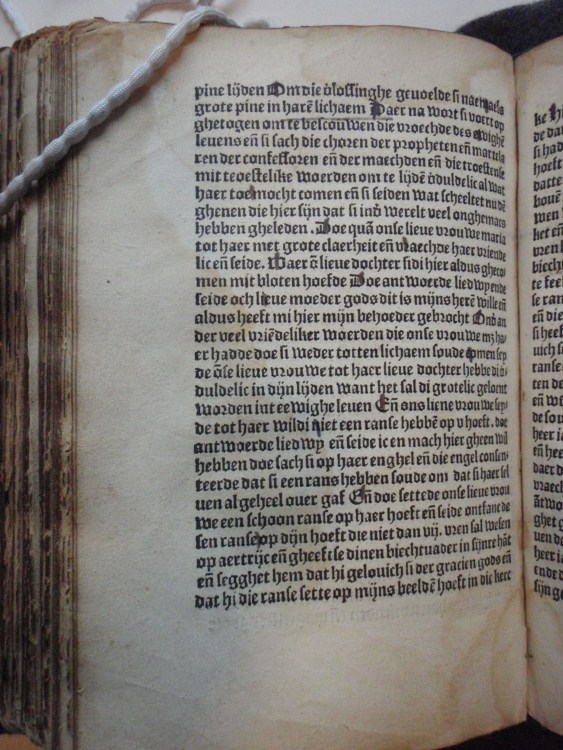 pine lijden Om die v̄lossinghe geuoelde si naemaels
grote pine in harē lichaem Daer na wort si voert op
ghetogen om te bescouwen die vroechde des ewighē
leuens en̄ si sach die choren der propheten en̄ martela
ren der confessoren en̄ der maechden en̄ die troesten se
mit troestelike woerden om te lijdē v̄duldelic al wat
haer toe mocht comen en̄ si seiden wat scheeltet nu dē
ghenen die hier sijn dat si in d̄ werelt veel onghemacs
hebben gheleden . Doe quā onse lieue vrou we maria
tot haer met grote claerheit en̄ vraechde haer vriende
lic en̄ seide. Waer ō lieue dochter sidi hier aldus gheco
men mit bloten hoefde Doe antwoerde liedwy en̄ de
seide och lieue moeder gods dit is mijns herē wille en̄
aldus heeft mi hier mijn behoeder gebrocht Ond̄ an
der veel vriēdeliker woerden die onse vrou we mz ha-
er hadde doe si weder totten lichaem soude comen sey
de ōse lieue vrou we tot haer lieue dochter hebbe di v̄-
duldelic in dijn lijden want het sal di grotelic geloent
worden int eewighe leuen En̄ ons lieue vrou we sey-
de tot haer wildi niet een ranse hebbē op v hoeft . doe
antwoerde liedwy en̄ seide ic en mach hier gheen wil
hebben doe sach si op haer enghel en̄ die engel consen-
teerde dat si een rans hebben soude om dat si haer sel
uen al geheel ouer gaf En̄ doe settede onse lieue vrou
we een schoon ranse op haer hoeft en̄ seide ontfanc de
sen ranse op dijn hoeft die niet dan vij. vren sal wesen
op aertrijc en̄ gheeft se dinen biechtuader in sijnre hāt
en̄ segghet hem dat hi gelouich si der gracien gods en̄
dat hi die ranse sette op mijns beeldē hoeft in die kerc